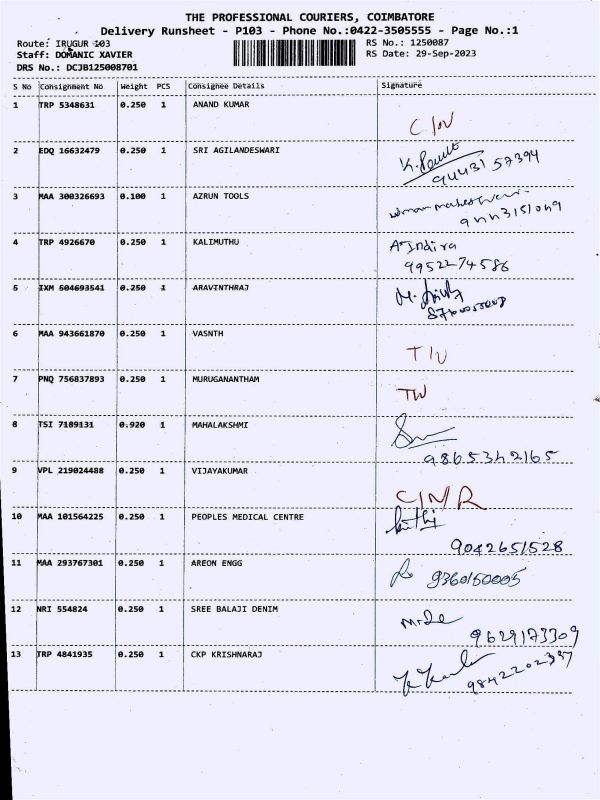 THE PROFESSIONAL COURIERS, COIMBATORE
Delivery Runsheet - P103 - Phone No.:0422-3505555 - Page No.:1
Route: IRUGUR 103
RS No.: 1250087
Staff: DOMANIC XAVIER
RS Date: 29-Sep-2023
DRS No.: DCJB125008701
S No Consignment No Weight PCS Consignee Details Signature
1 TRP 5348631 0.250 1 ANAND KUMAR
C/N
2 EDQ 16632479 0.250 1 SRI AGILANDESWARI
94431 57394
3 MAA 300326693 0.100 1 AZRUN TOOLS
4 TRP 4926670 0.250 1 KALIMUTHU
A. Indira
9952274586
5 IXM 504693541 0.250 1 ARAVINTHRAJ
6 MAA 943661870 0.250 1 VASNTH
7 PNQ 756837893 0.250 1 MURUGANANTHAM
8 TSI 7189131 0.920 1 MAHALAKSHMI
9865342165
9 VPL 219024488 0.250 1 VIJAYAKUMAR
C/N/R
10 MAA 101564225 0.250 1 PEOPLES MEDICAL CENTRE
9042651528
11 MAA 293767301 0.250 1 AREON ENGG
9360150005
12 NRI 554824 0.250 1 SREE BALAJI DENIM
9629173309
13 TRP 4841935 0.250 1 CKP KRISHNARAJ
9842202397